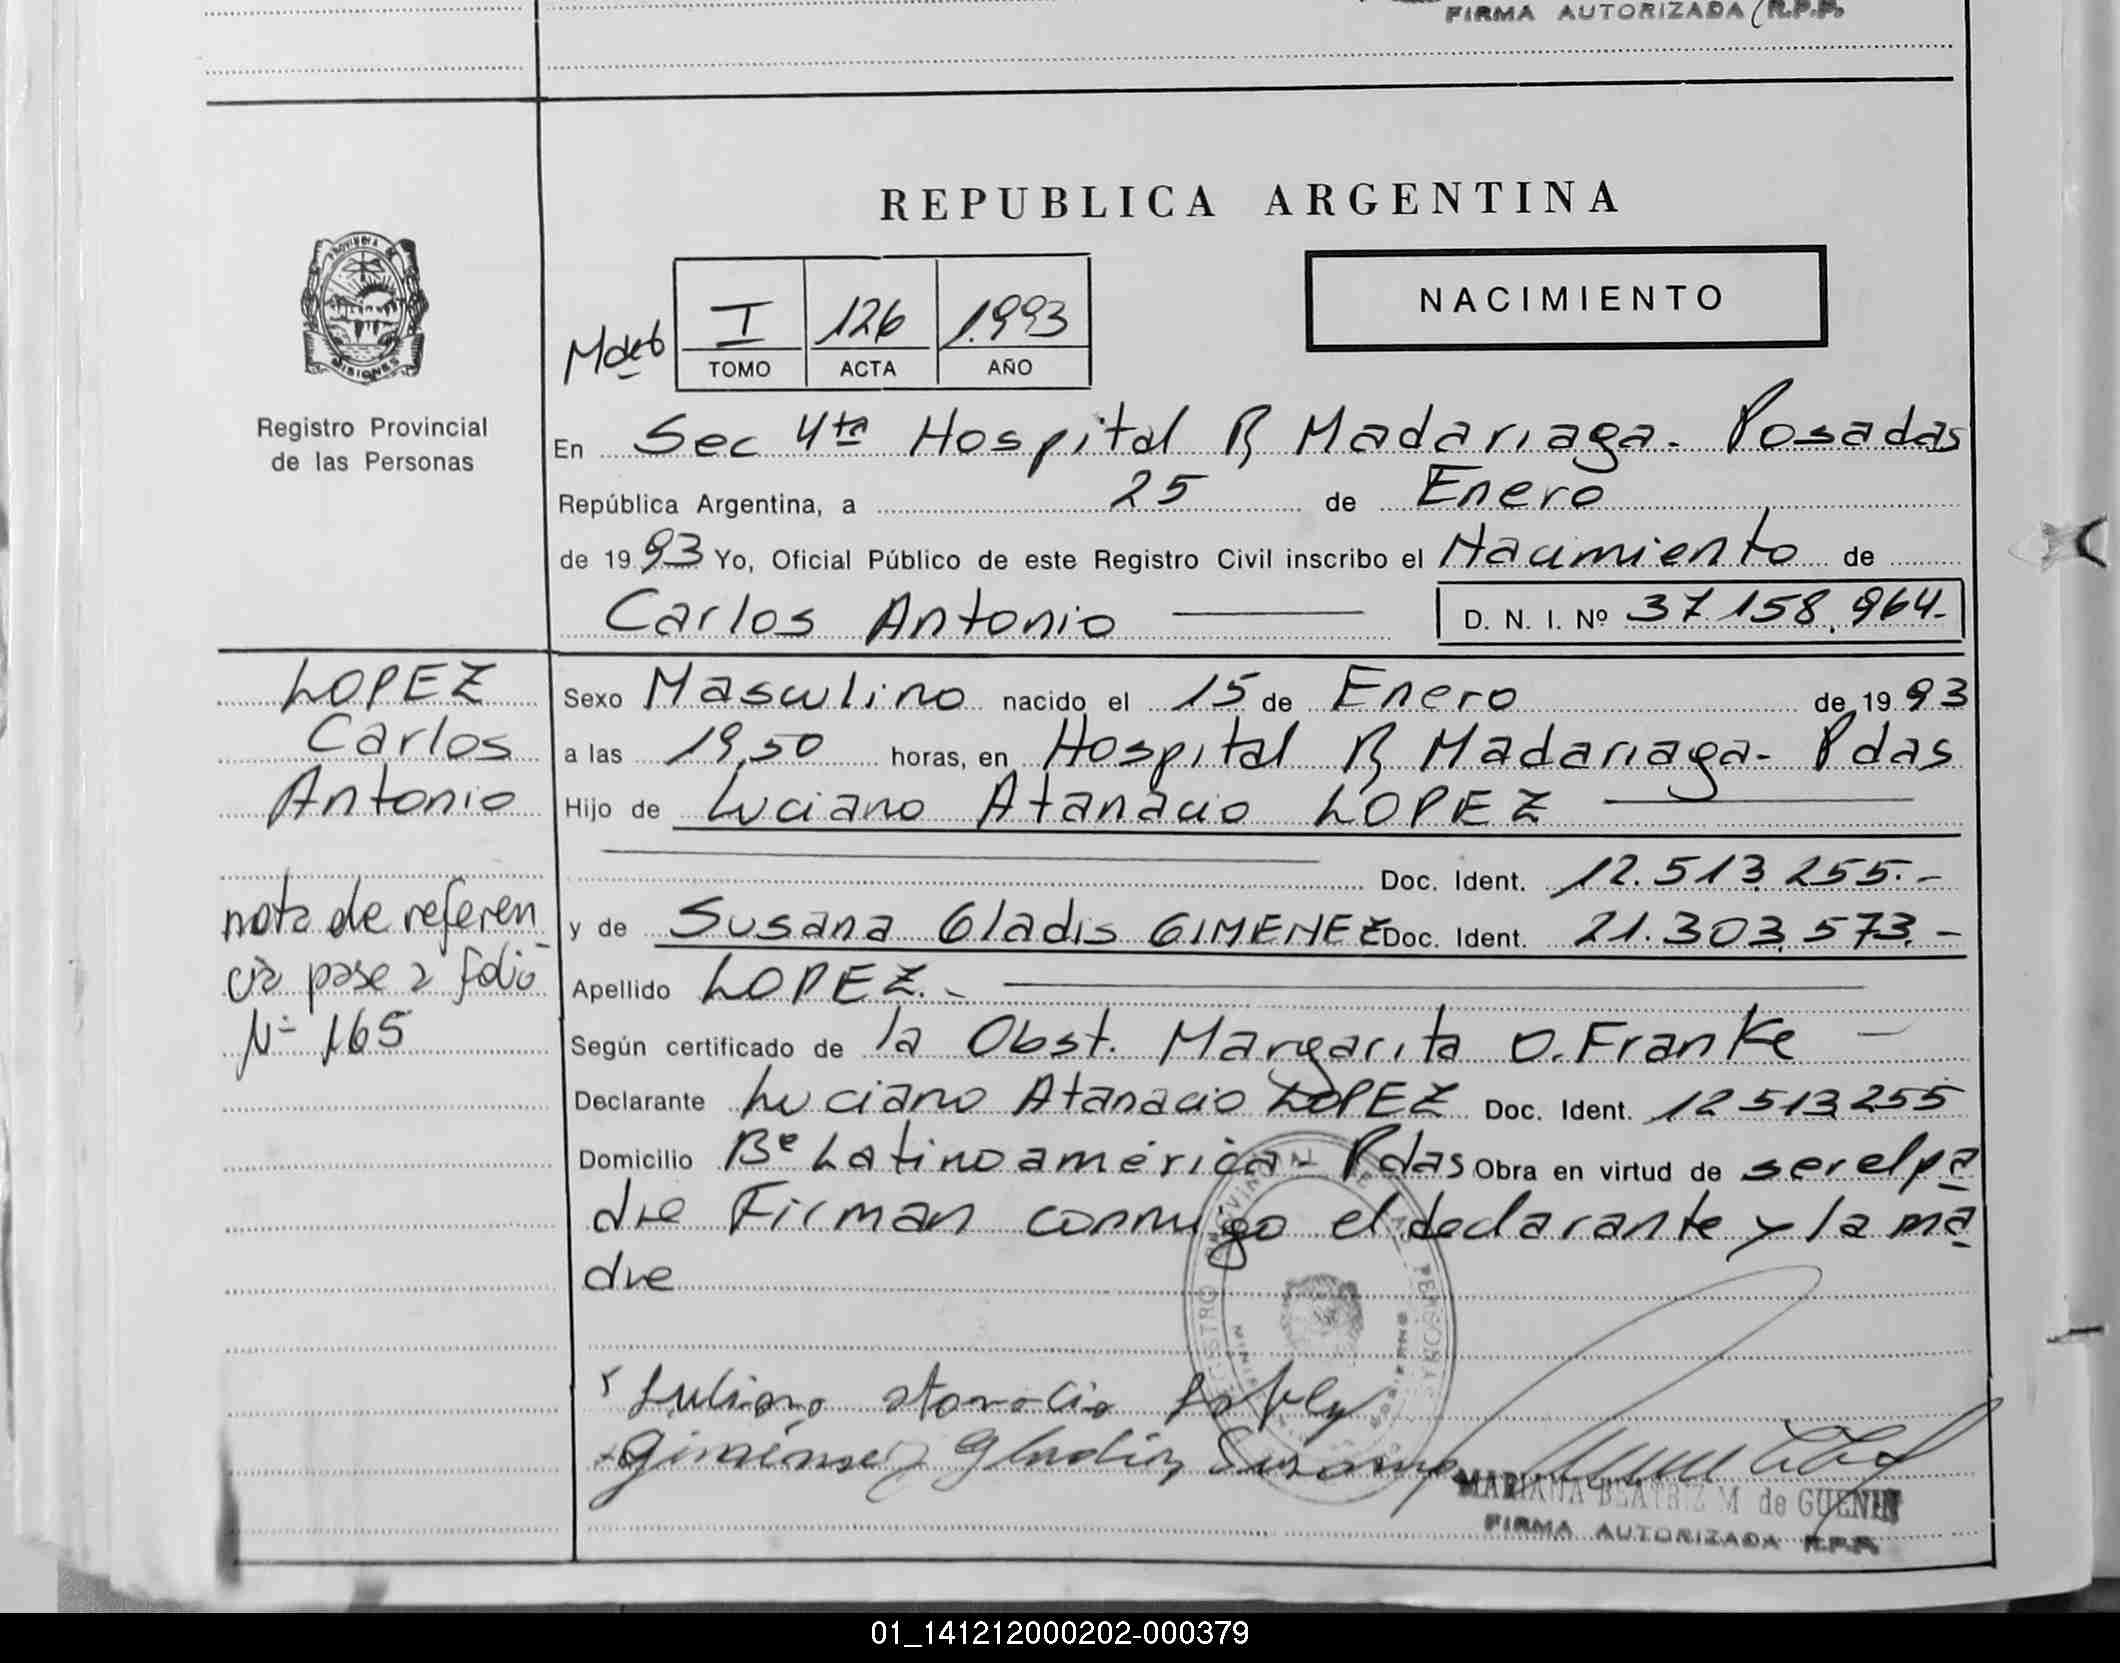 FIRMA AUTORIZADA R.P.P.
REPUBLICA ARGENTINA
PROVINCIA DE
MISIONES
Registro Provincial
de las Personas
I 126 1.993
TOMO ACTA AÑO
NACIMIENTO
En Sec 4ta Hospital R Madariaga - Posadas
República Argentina, a 25 de Enero
de 1993 Yo, Oficial Público de este Registro Civil inscribo el Nacimiento de
Carlos Antonio D. N. I. Nº 37.158.964.-
LOPEZ
Carlos
Antonio
nota de referen
cia pase a folio
Nº 165
Sexo Masculino nacido el 15 de Enero de 1993
a las 19,50 horas, en Hospital R Madariaga - Pdas
Hijo de Luciano Atanacio LOPEZ
Doc. Ident. 12.513.255.-
y de Susana Gladis GIMENEZ Doc. Ident. 21.303.573.-
Apellido LOPEZ.-
Según certificado de la Obst. Margarita O. Franke -
Declarante Luciano Atanacio LOPEZ Doc. Ident. 12 513 255
Domicilio Bº Latinoamérica - Pdas Obra en virtud de ser el pa
dre Firman conmigo el declarante y la ma
dre
Gladis Susana
MARIANA BEATRIZ M de GUENIN
FIRMA AUTORIZADA R.P.P.
01_141212000202-000379